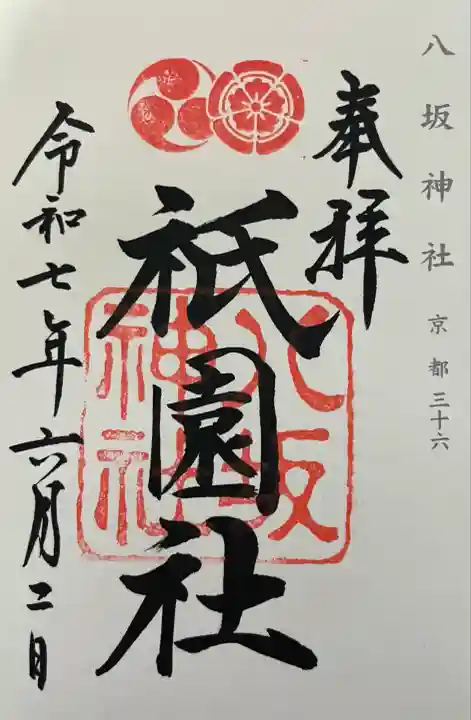 八坂神社 京都三十六
奉拝
祇園社
八坂
神社
令和七年六月二日